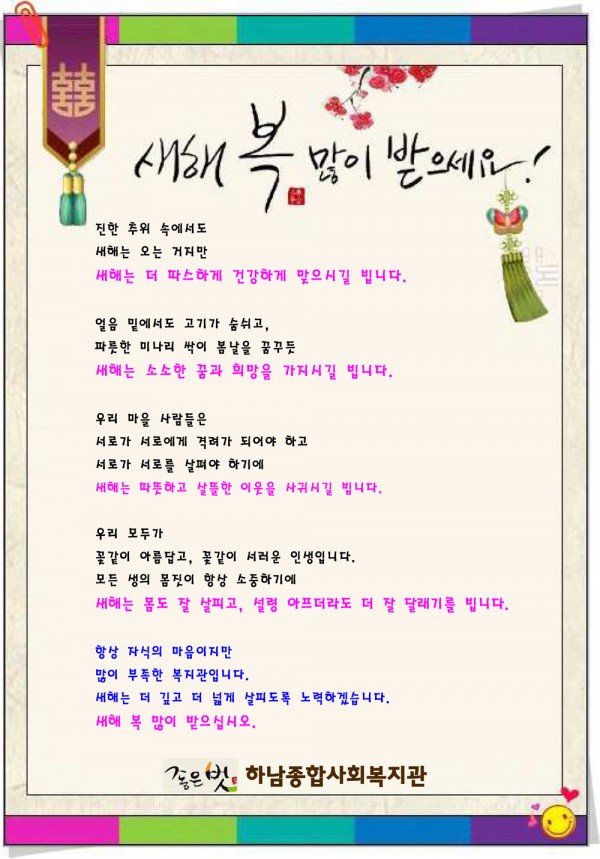 囍
새해 복 많이 받으세요!
진한 추위 속에서도
새해는 오는 거지만
새해는 더 따스하게 건강하게 맞으시길 빕니다.
얼음 밑에서도 고기가 숨쉬고,
파릇한 미나리 싹이 봄날을 꿈꾸듯
새해는 소소한 꿈과 희망을 가지시길 빕니다.
우리 마을 사람들은
서로가 서로에게 격려가 되어야 하고
서로가 서로를 살펴야 하기에
새해는 따뜻하고 살뜰한 이웃을 사귀시길 빕니다.
우리 모두가
꽃같이 아름답고, 꽃같이 서러운 인생입니다.
모든 생의 몸짓이 항상 소중하기에
새해는 몸도 잘 살피고, 설령 아프더라도 더 잘 달래기를 빕니다.
항상 자식의 마음이지만
많이 부족한 복지관입니다.
새해는 더 깊고 더 넓게 살피도록 노력하겠습니다.
새해 복 많이 받으십시오.
좋은벗 하남종합사회복지관